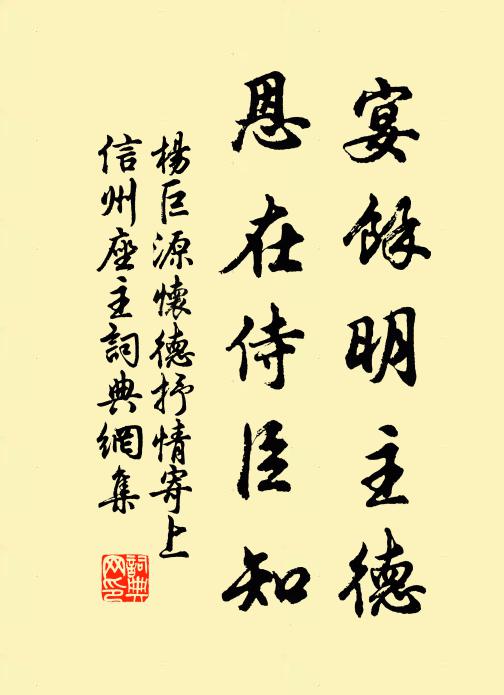 宴餘明主德
恩在侍臣知
楊巨源懷德抒情寄上
信州座主詞典網集
詞典網印